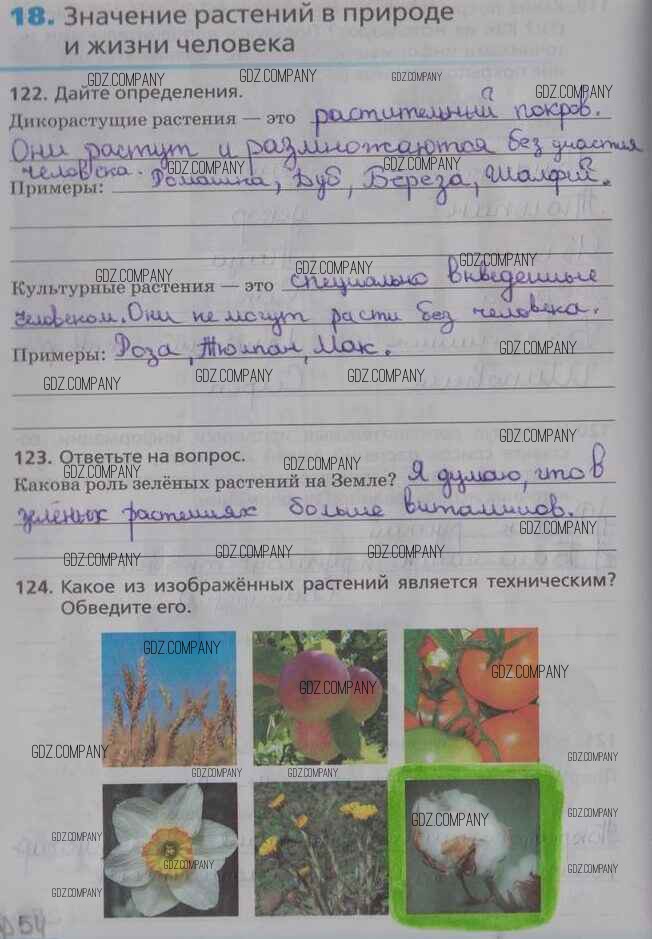 18. Значение растений в природе
и жизни человека
GDZ.COMPANY GDZ.COMPANY GDZ.COMPANY
122. Дайте определения. GDZ.COMPANY
Дикорастущие растения — это растительный покров.
Они растут и размножаются без участия
человека. GDZ.COMPANY GDZ.COMPANY
Примеры: Ромашка, Дуб, Береза, Шалфей.
GDZ.COMPANY GDZ.COMPANY GDZ.COMPANY
Культурные растения — это специально внведенные
человеком. Они не могут расти без человека.
Примеры: Роза, Тюлпан, Мак. GDZ.COMPANY
GDZ.COMPANY GDZ.COMPANY GDZ.COMPANY
GDZ.COMPANY
123. Ответьте на вопрос.
GDZ.COMPANY GDZ.COMPANY
Какова роль зелёных растений на Земле? Я думаю, что в
зелёных растениях больше витаминов.
GDZ.COMPANY GDZ.COMPANY GDZ.COMPANY
124. Какое из изображённых растений является техническим?
Обведите его.
GDZ.COMPANY
GDZ.COMPANY GDZ.COMPANY
GDZ.COMPANY GDZ.COMPANY
GDZ.COMPANY GDZ.COMPANY
GDZ.COMPANY GDZ.COMPANY
GDZ.COMPANY
GDZ.COMPANY GDZ.COMPANY
GDZ.COMPANY
54